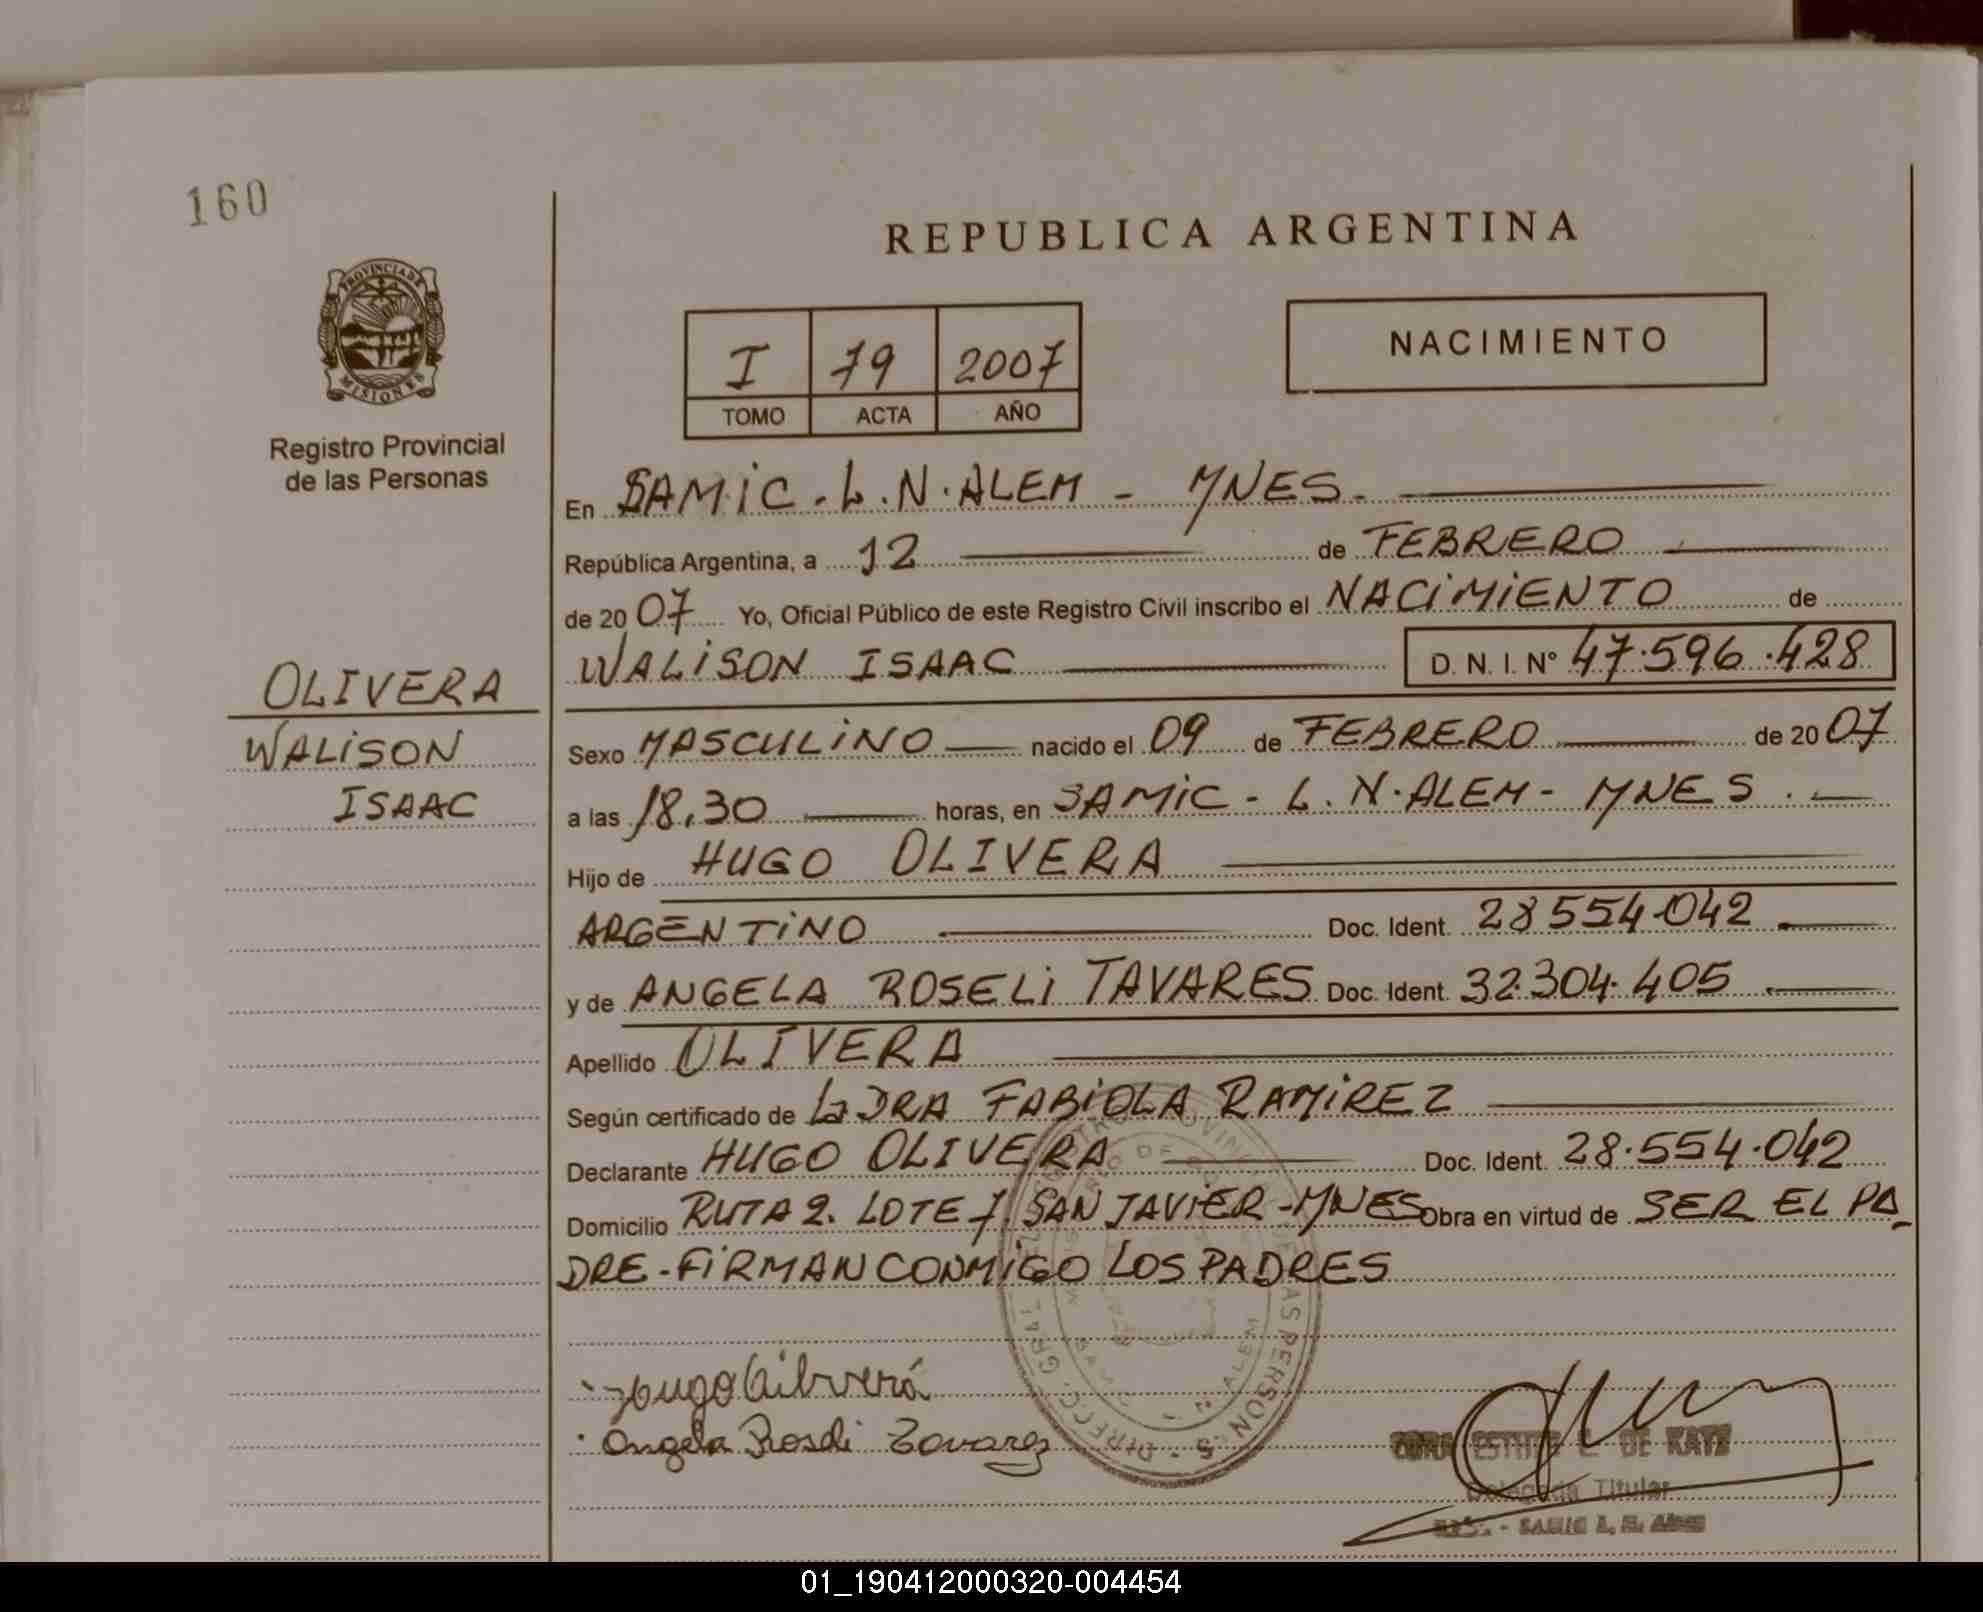 160
REPUBLICA ARGENTINA
PROVINCIA DE
MISIONES
Registro Provincial
de las Personas
I 79 2007
TOMO ACTA AÑO
NACIMIENTO
En SAMIC. L. N. ALEM - MNES.
República Argentina, a 12 de FEBRERO
de 2007 Yo, Oficial Público de este Registro Civil inscribo el NACIMIENTO de
WALISON ISAAC D. N. I. Nº 47.596.428
OLIVERA
WALISON
ISAAC
Sexo MASCULINO nacido el 09 de FEBRERO de 2007
a las 18,30 horas, en SAMIC - L. N. ALEM - MNES.
Hijo de HUGO OLIVERA
ARGENTINO Doc. Ident. 28554.042
y de ANGELA ROSELI TAVARES Doc. Ident. 32.304.405
Apellido OLIVERA
Según certificado de La DRA FABIOLA RAMIREZ
Declarante HUGO OLIVERA Doc. Ident. 28.554.042
Domicilio RUTA 2. LOTE 7. SAN JAVIER - MNES Obra en virtud de SER EL PA_
DRE - FIRMAN CONMIGO LOS PADRES
Hugo
Angela Roseli Tavarez
DE KATZ
Delegada Titular
SAMIC L. N. Alem
01_190412000320-004454